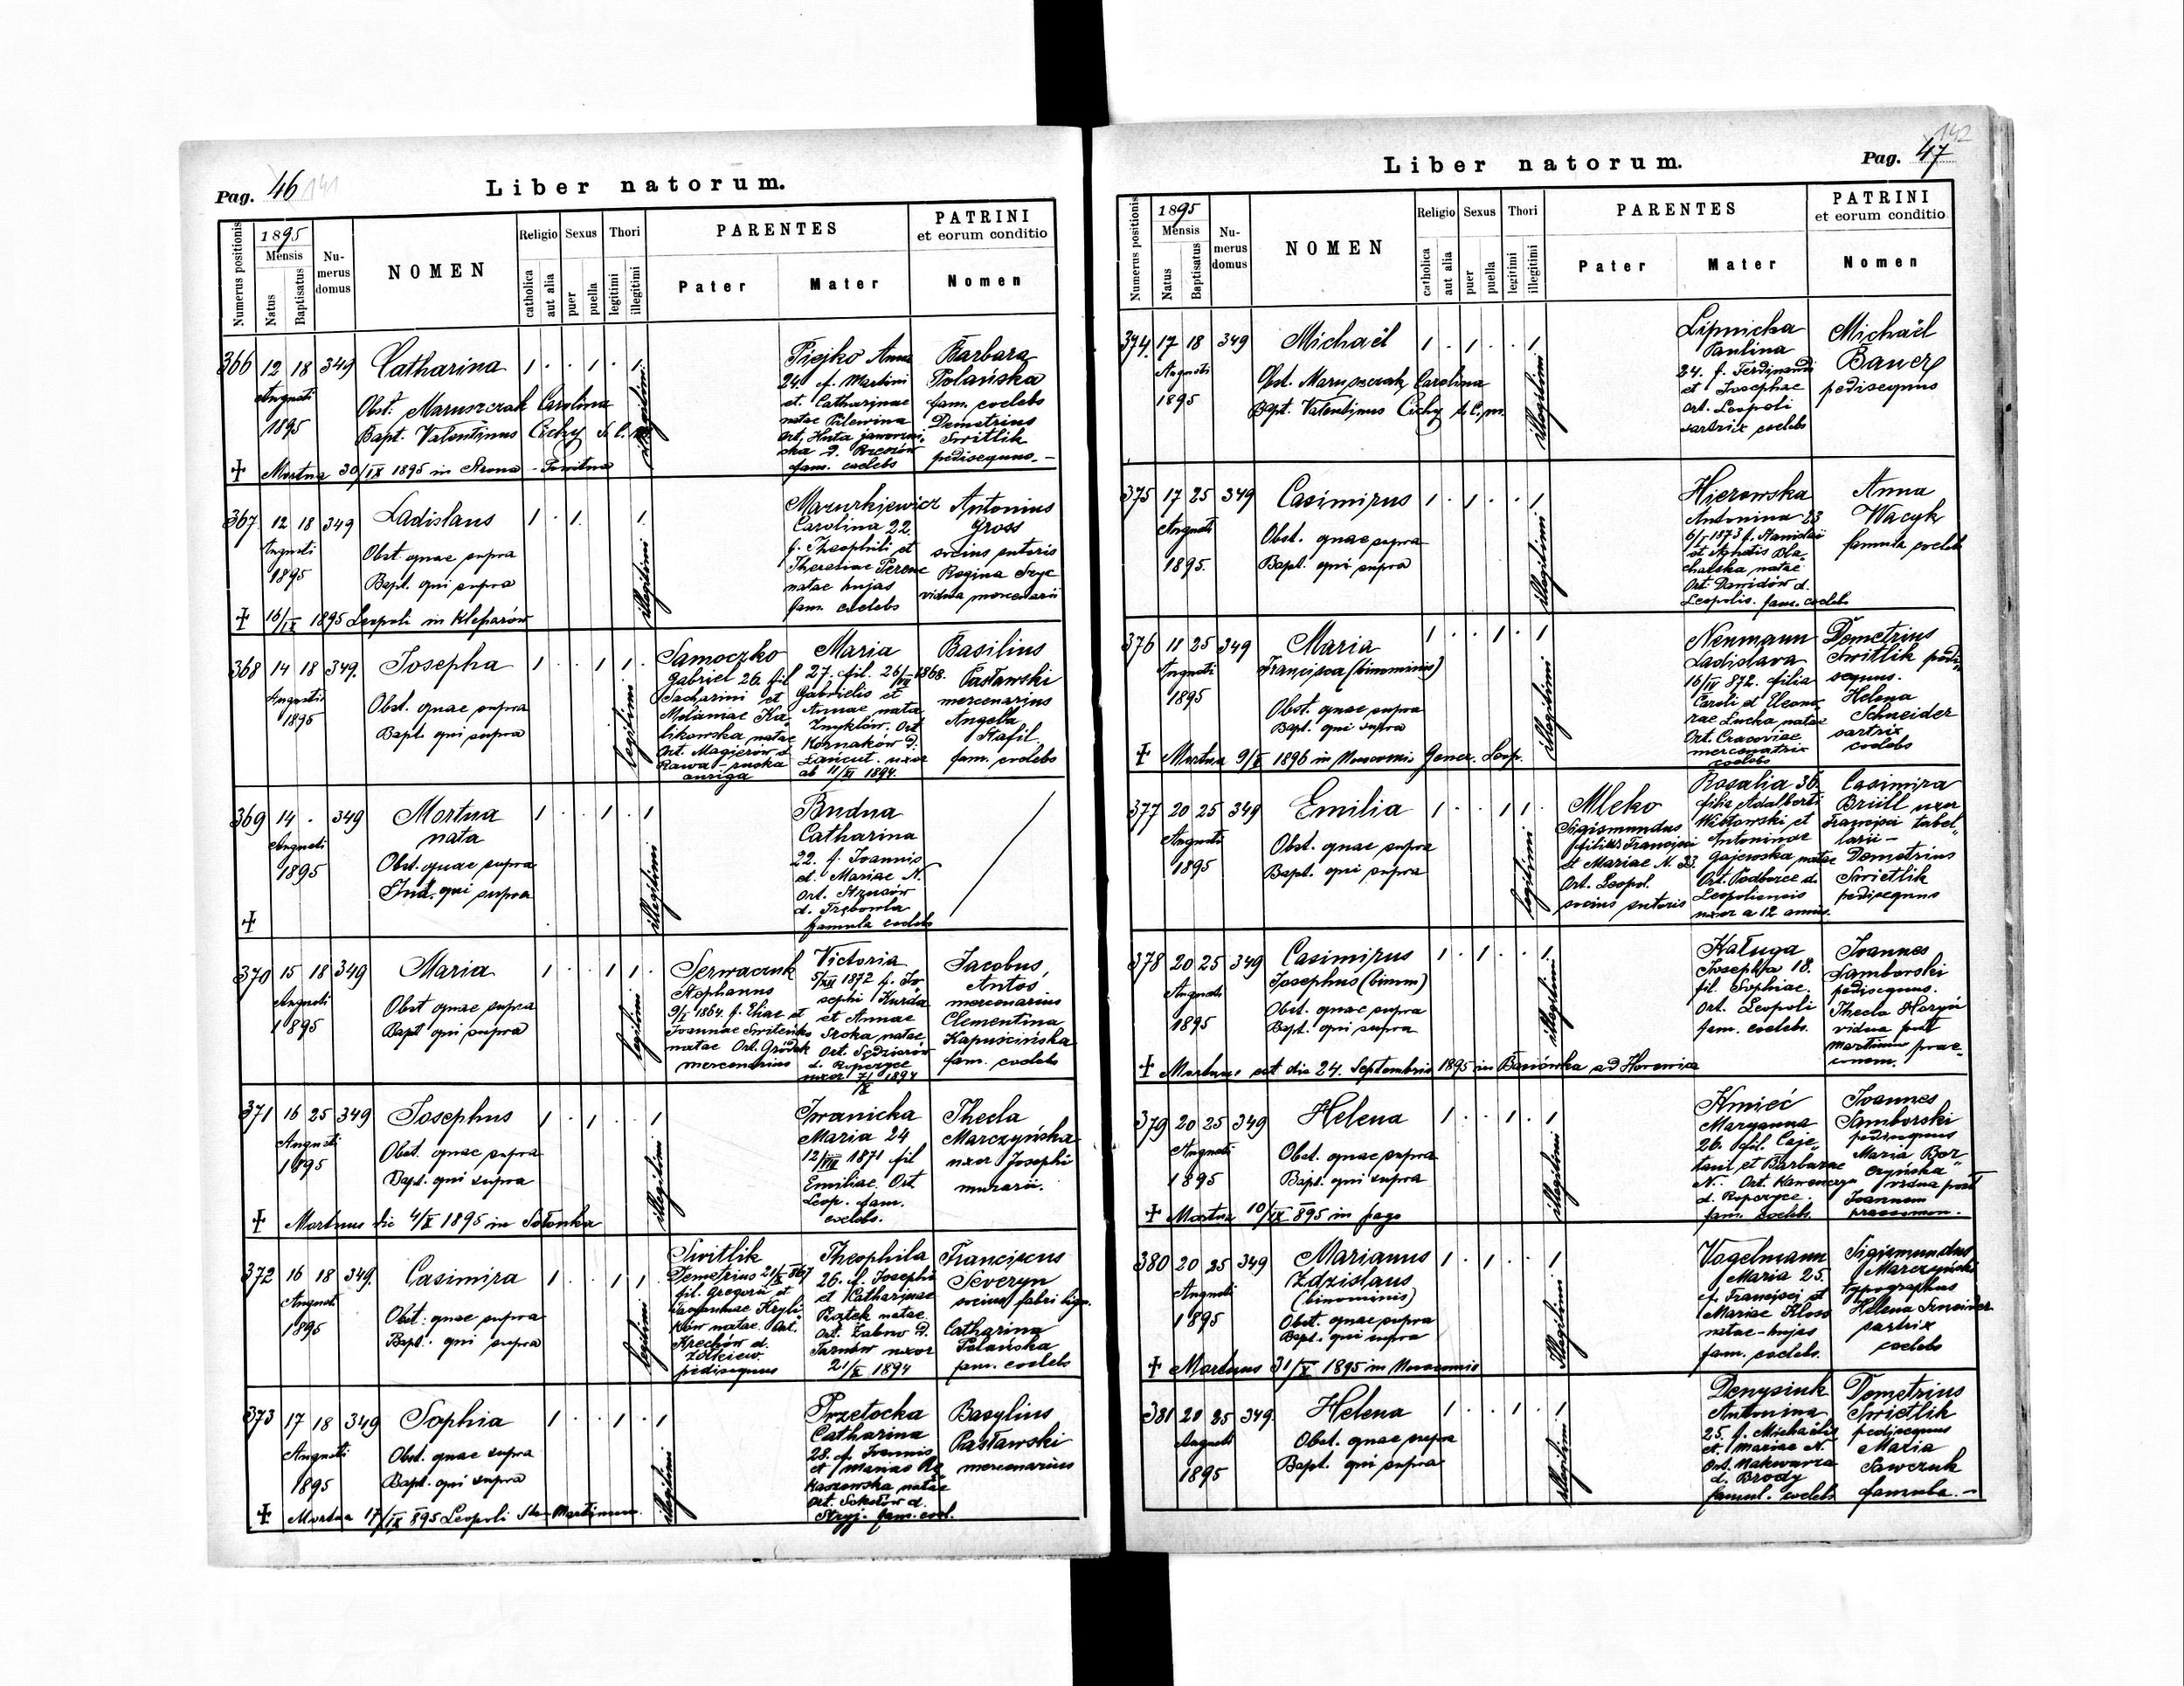 Pag. 46 141
Liber natorum.
Numerus positionis
1895
Mensis
Natus
Baptisatus
Nu-
merus
domus
NOMEN
Religio
catholica
aut alia
Sexus
puer
puella
Thori
legitimi
illegitimi
PARENTES
Pater
Mater
PATRINI
et eorum conditio
Nomen
366 12 18 349 Catharina 1 . . 1 . 1
Augusti
1895
Obst. Maruszczak Carolina
Bapt. Valentinus Cichy
illegitimi
Piejko Anna
24. f. Martini
et Catharinae
natae Pilewina
fam. coelebs
Barbara
Polańska
fam. coelebs
Demetrius
Switlik
pedisequus. -
+ Mortua 30/IX 1895 in
367 12 18 349 Ladislaus 1 . 1 . 1
Augusti
1895
Obst. quae supra
Bapt. qui supra
illegitimi
Mazurkiewicz
Carolina 22
f. Theophili et
Theresiae
natae hujas
fam. coelebs
Antonius
Gross
socius sutoris
Regina
vidua mercenarii
+ 16/IX 1895 Leopoli in Kleparów
368 14 18 349. Josepha 1 . . 1 1 .
Augusti
1895
Obst. quae supra
Bapt. qui supra
legitimi
Samoczko
Gabriel 26. fil
Zacharini et
Melaniae
likowska natae
Ort. Magierów d.
Rawa-ruska
auriga
Maria
27. fil. 1868.
Gabrielis et
Annae nata
Ort
Kosnaków d.
Łańcut. uxor
ab 11/XI 1894.
Basilius
Pasławski
mercenarius
Angela
Stafil
fam. coelebs
369 14 . 349 Mortua 1 . . 1 . 1
nata
Augusti
1895
Obst. quae supra
qui supra
illegitimi
Budna
Catharina
22. f. Joannis
et Mariae N.
Ort. Strusów
d. Trębowla
famula coelebs
+
370 15 18 349 Maria 1 . . 1 1 .
Augusti
1895
Obst quae supra
Bapt qui supra
legitimi
Serwaczuk
Stephanus
9/I 1864. f. Eliae et
Joannae
natae Ort. Gródek
mercenarius
Victoria
5/XII 1872 f. Jo
sephi Kurda
et Annae
Sroka natae
Ort. Sędziszów
d. Ropczyce
uxor 1894
Jacobus
Antos
mercenarius
Clementina
Kapuścińska
fam. coelebs
371 16 25 349 Josephus 1 . 1 . . 1
Augusti
1895
Obst. quae supra
Bapt. qui supra
illegitimi
Iwanicka
Maria 24
12/VIII 1871 fil
Emiliae. Ort
Leop. fam.
coelebs.
Thecla
Marczyńska
uxor Josephi
murarii.
+ Mortuus die 4/X 1895 in Sołonka
372 16 18 349. Casimira 1 . . 1 1 .
Augusti
1895
Obst. quae supra
Bapt. qui supra
legitimi
Switlik
Demetrius 21/X 867
fil. Gregorii et
natae. Ort.
Krechów d.
Żółkiew.
pedisequus
Theophila
26. f. Josephi
et Catharinae
Piątek natae
Ort. Żabno d.
Tarnów uxor
21/X 1894
Franciscus
Seweryn
socius fabri lign.
Catharina
Polańska
fam. coelebs
373 17 18 349 Sophia 1 . . 1 . 1
Augusti
1895
Obst. quae supra
Bapt. qui supra
illegitimi
Przetocka
Catharina
28. f. Joannis
et Mariae
kaszewska natae
Ort. Sokołów d.
Stryj. fam. coel.
Basylius
Pasławski
mercenarius
+ Mortua 17/IX 895 Leopoli Martinum.
Pag. 47 142
Liber natorum.
Numerus positionis
1895
Mensis
Natus
Baptisatus
Nu-
merus
domus
NOMEN
Religio
catholica
aut alia
Sexus
puer
puella
Thori
legitimi
illegitimi
PARENTES
Pater
Mater
PATRINI
et eorum conditio
Nomen
374. 17 18 349 Michaël 1 . 1 . . 1
Augusti
1895
Obst. Maruszczak Carolina
Bapt. Valentinus Cichy
illegitimi
Lipnicka
Paulina
24. f. Ferdinandi
et Josephae
Ort. Leopoli
sartrix coelebs
Michaël
Bauer
pedisequus
375 17 25 349 Casimirus 1 . 1 . . 1
Augusti
1895.
Obst. quae supra
Bapt. qui supra
illegitimi
Hierowska
Antonina 23
6/I 1873 f. Stanislai
et Agnetis Bla-
charska natae
Ort. Dawidów d.
Leopolis. fam. coelebs
Anna
Wacyk
famula coelebs
376 11 25 349 Maria 1 . . 1 . 1
Francisca (binominis)
Augusti
1895
Obst. quae supra
Bapt. qui supra
illegitimi
Neumann
Ladislava
16/IV 872. filia
Caroli et Eleono
rae Lucka natae
Ort. Cracoviae
mercenatrix
coelebs
Demetrius
Switlik pedi-
sequus.
Helena
Schneider
sartrix
coelebs
+ Mortua 9/X 1896 in Nosocomio Gener. Leop.
377 20 25 349 Emilia 1 . . 1 1 .
Augusti
1895
Obst. quae supra
Bapt. qui supra
legitimi
Mleko
Sigismundus
filius Francisci
et Mariae N. 33.
Ort. Leopol.
socius sutoris
Rosalia 36.
filia Adalberti
et
Antoninae
Gajewska natae
Ort. Podborce d.
Leopoliensis
uxor a 12 annis.
Casimira
Brüll uxor
Francisci tabel-
larii -
Demetrius
Swietlik
pedisequus
378 20 25 349 Casimirus 1 . 1 . . 1
Josephus (binom)
Augusti
1895
Obst. quae supra
Bapt. qui supra
illegitimi
Kaługa
Josepha 18.
fil. Sophiae.
Ort. Leopoli
fam. coelebs.
Joannes
Samborski
pedisequus.
Thecla
vidua post
Martinum prae-
conem.
+ Mortuus est die 24. Septembris 1895 in Basiówka ad
379 20 25 349 Helena 1 . . 1 . 1
Augusti
1895
Obst. quae supra
Bapt. qui supra
illegitimi
Kmieć
Maryanna
26. fil. Caje-
tani et Barbarae
N. Ort.
d. Ropczyce.
fam. coelebs.
Joannes
Samborski
pedisequus
Maria Bor
czyńska
vidua post
Joannem
praeconem.
+ Mortua 10/IX 895 in
380 20 25 349 Marianus 1 . 1 . . 1
Zdzislaus
(binominis)
Augusti
1895
Obst. quae supra
Bapt. qui supra
illegitimi
Vogelmann
Maria 25.
f. Francisci et
Mariae Kloss
natae - hujas
fam. coelebs.
Sigismundus
Marczyński
typographus
Helena Sneider
sartrix
coelebs
+ Mortuus 31/X 1895 in Nosocomio
381 20 25 349. Helena 1 . . 1 . 1
Augusti
1895
Obst. quae supra
Bapt. qui supra
illegitimi
Denysiuk
Antonina
25. f. Michaëlis
et Mariae N.
Ort. Nakwasza
d. Brody
famul. coelebs
Demetrius
Swietlik
pedisequus
Maria
Sawczuk
famula. -